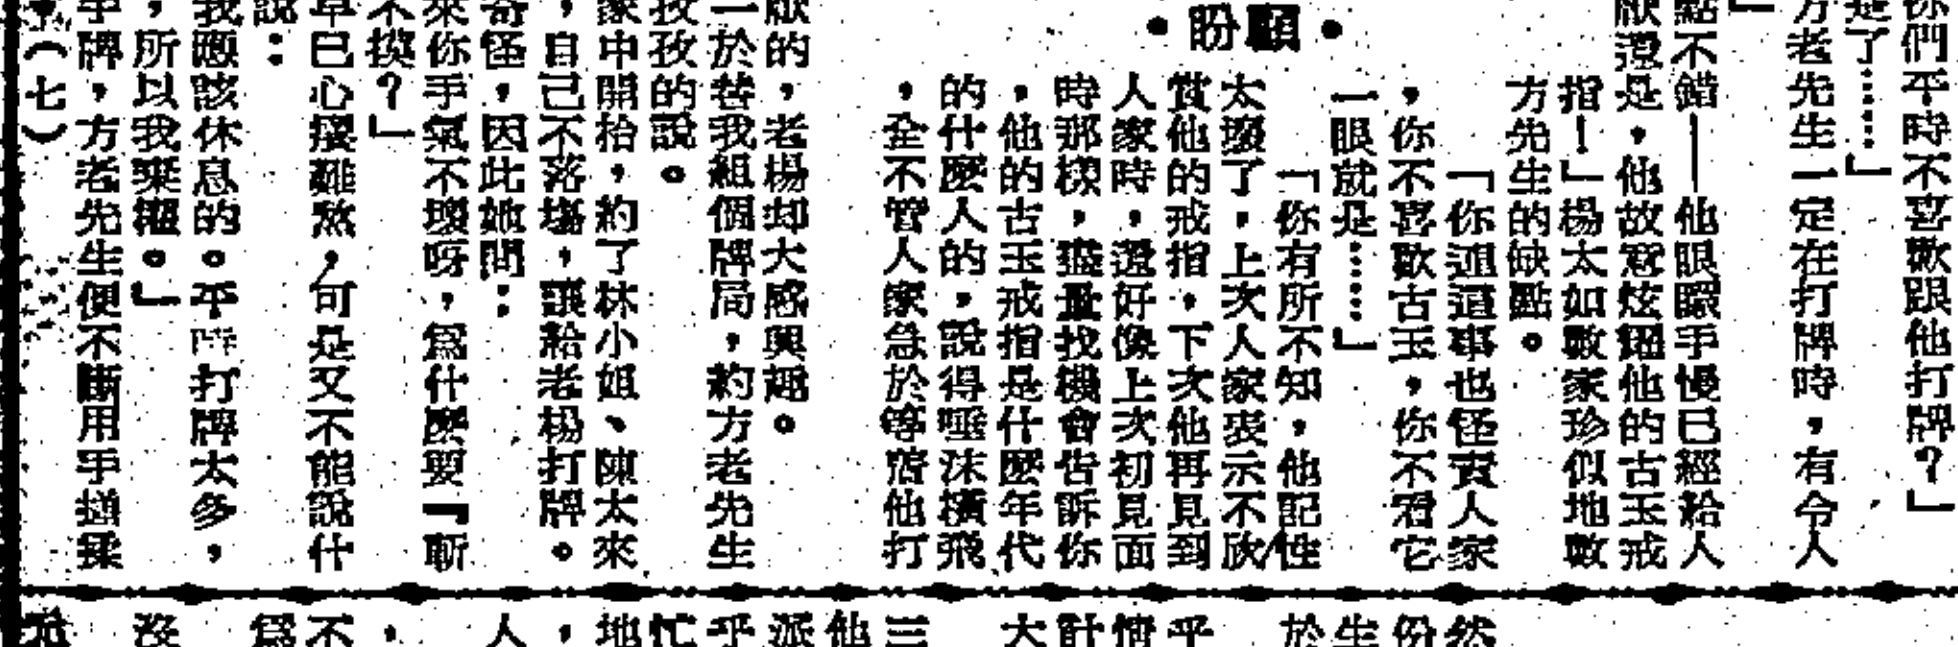 你們平時不喜歡跟他打牌？」
是了……」
方老先生一定在打牌時，有令人
」
點不錯——他眼眼手慢已經給人
厭還是，他故意炫耀他的古玉戒
指！」楊太如數家珍似地數
方先生的缺點。
「你這事也怪責人家
，你不喜歡古玉，你不看它
一眼就是……」
「你有所不知，他記性
太壞了，上次人家表示不欣
賞他的戒指，下次他再見到
人家時，還好像上次初見面
時那樣，儘量找機會告訴你
，他的古玉戒指是什麼年代
的什麼人的，說得唾沫橫飛
，全不管人家急於等着他打
•顧盼•
厭的，老楊却大感興趣。
一於替我組個牌局，約方老先生
孜孜的說。
家中開枱，約了林小姐、陳太來
，自己不落場，讓給老楊打牌。
奇怪，因此她問：
來你手氣不壞呀，爲什麼要『斬
不摸？」
卓已心癢難熬，可是又不能說什
說：
我應該休息的。平時打牌太多，
，所以我棄權。」
手牌，方老先生便不斷用手搓揉
（七）
然
份
生
於
平
情
計
大
三
他
派
乎
忙
地
，
人
，
不
爲
沒